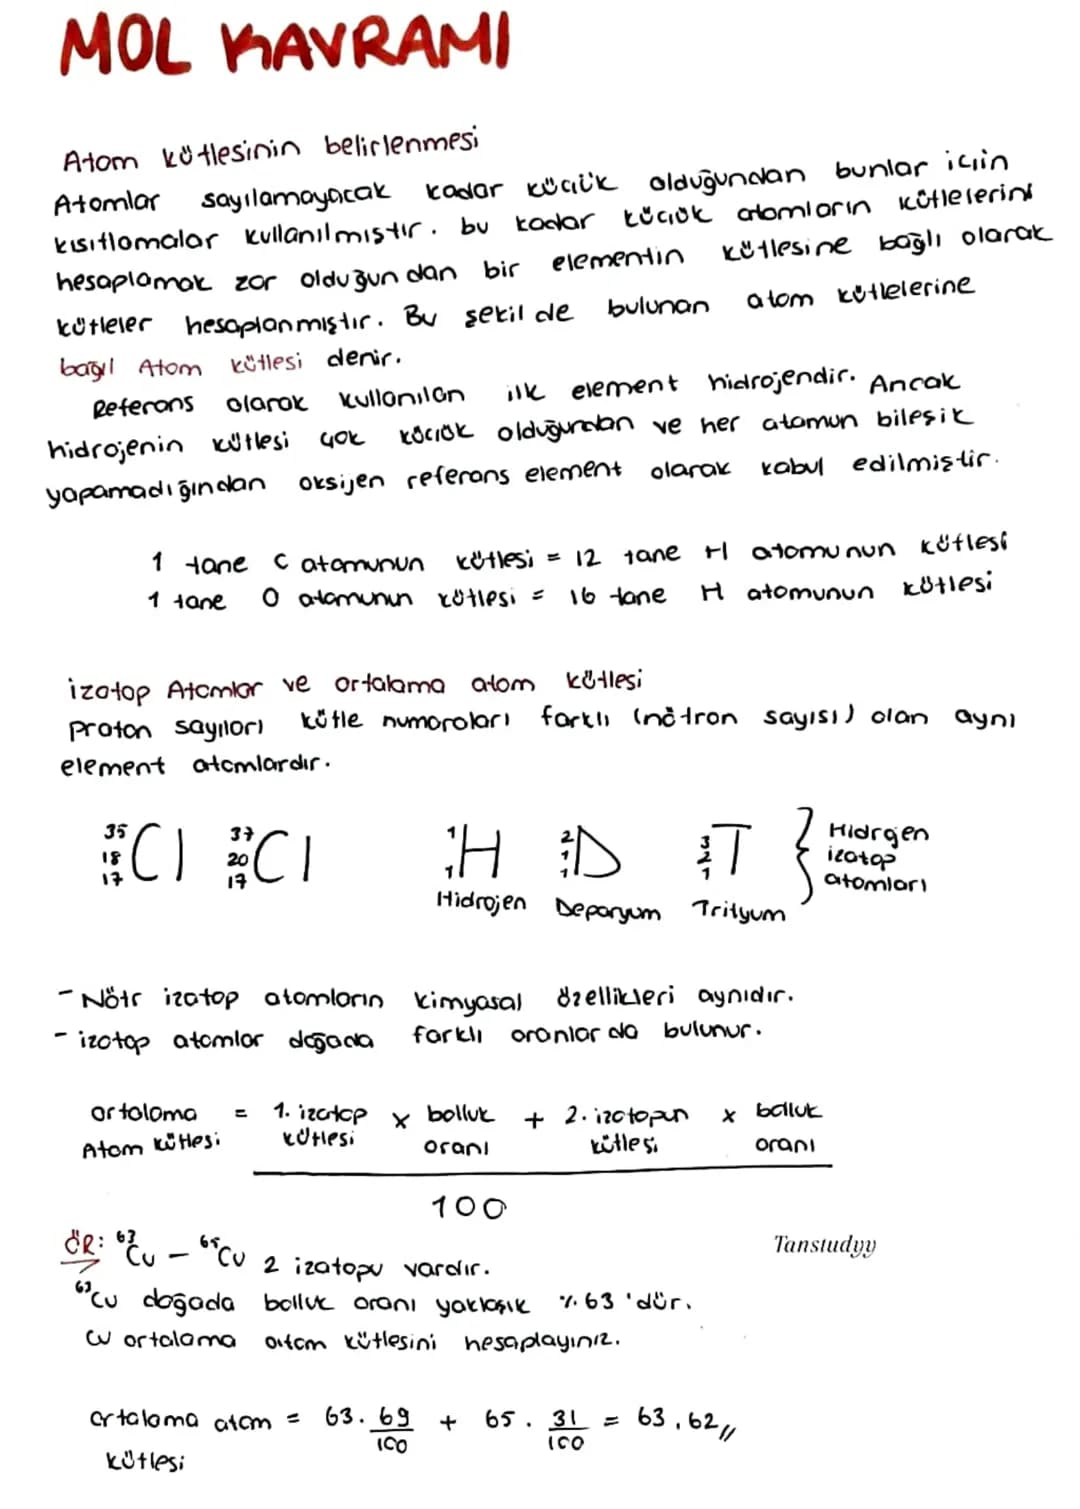 MOL KAVRAMI
Atom kütlesinin belirlenmesi
Atomlar sayılamayacak kadar küçük olduğundan bunlar için
kısıtlamalar kullanılmıştır. bu kadar küçük atomların kütlelerini
hesaplamak zor olduğundan bir elementin kütlesine bağlı olarak
kütleler hesaplanmıştır. Bu şekilde bulunan atom kütlelerine
bağıl Atom kütlesi denir.
Referans olarak kullanılan ilk element hidrojendir. Ancak
hidrojenin kütlesi çok küçük olduğundan ve her atomun bileşik
yapamadığından oksijen referans element olarak kabul edilmiştir.
1 tane C atomunun kütlesi = 12 tane H atomunun kütlesi
1 tane O atomunun kütlesi = 16 tane H atomunun kütlesi
izotop Atomlar ve ortalama atom kütlesi
Proton sayıları kütle numaraları farklı (nötron sayısı) olan aynı
element atomlardır.
35 18 17 Cl 37 20 17 Cl 1 1 H 2 1 1 D 3 2 1 T } Hidrgen
izotop
atomları
Hidrojen Deparyum Trityum
- Nötr izotop atomların kimyasal özellikleri aynıdır.
- izotop atomlar doğada farklı oranlarda bulunur.
ortalama = 1. izotop x bolluk + 2. izotopun x bolluk
Atom kütlesi kütlesi oranı kütlesi oranı
100
ÖR: 63Cu - 65Cu 2 izotopu vardır.
Tanstudyy
63Cu doğada bolluk oranı yaklaşık %63'dür.
Cu ortalama atom kütlesini hesaplayınız.
ortalama atom = 63. 69/100 + 65. 31/100 = 63,62//
kütlesi